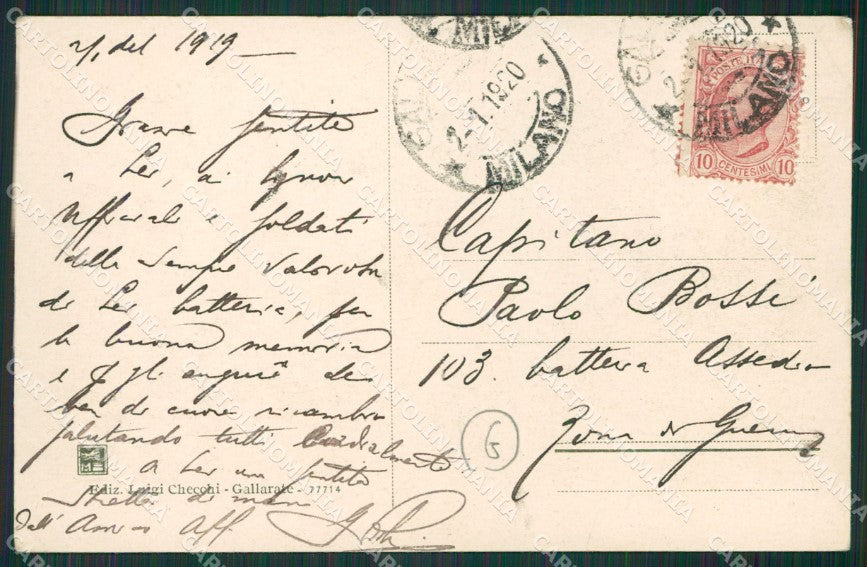 del 1919
Grazie sentite
a Lei, ai Signori
Ufficiali e soldati
della sempre valorosa
di Lei batteria, per
la buona memoria
e gli auguri che
ben di cuore ricambio
salutando tutti cordialmente
A Lei una sentita
stretta di mano
dall' Amico Aff.
Ediz. Luigi Checchi - Gallarate - 77714
2-1.1920
MILANO
POSTE
10 CENTESIMI 10
MILANO
Capitano
Paolo Bossi
103. batteria Assedio
Zona di Guerra
6
CARTOLINOMANIA